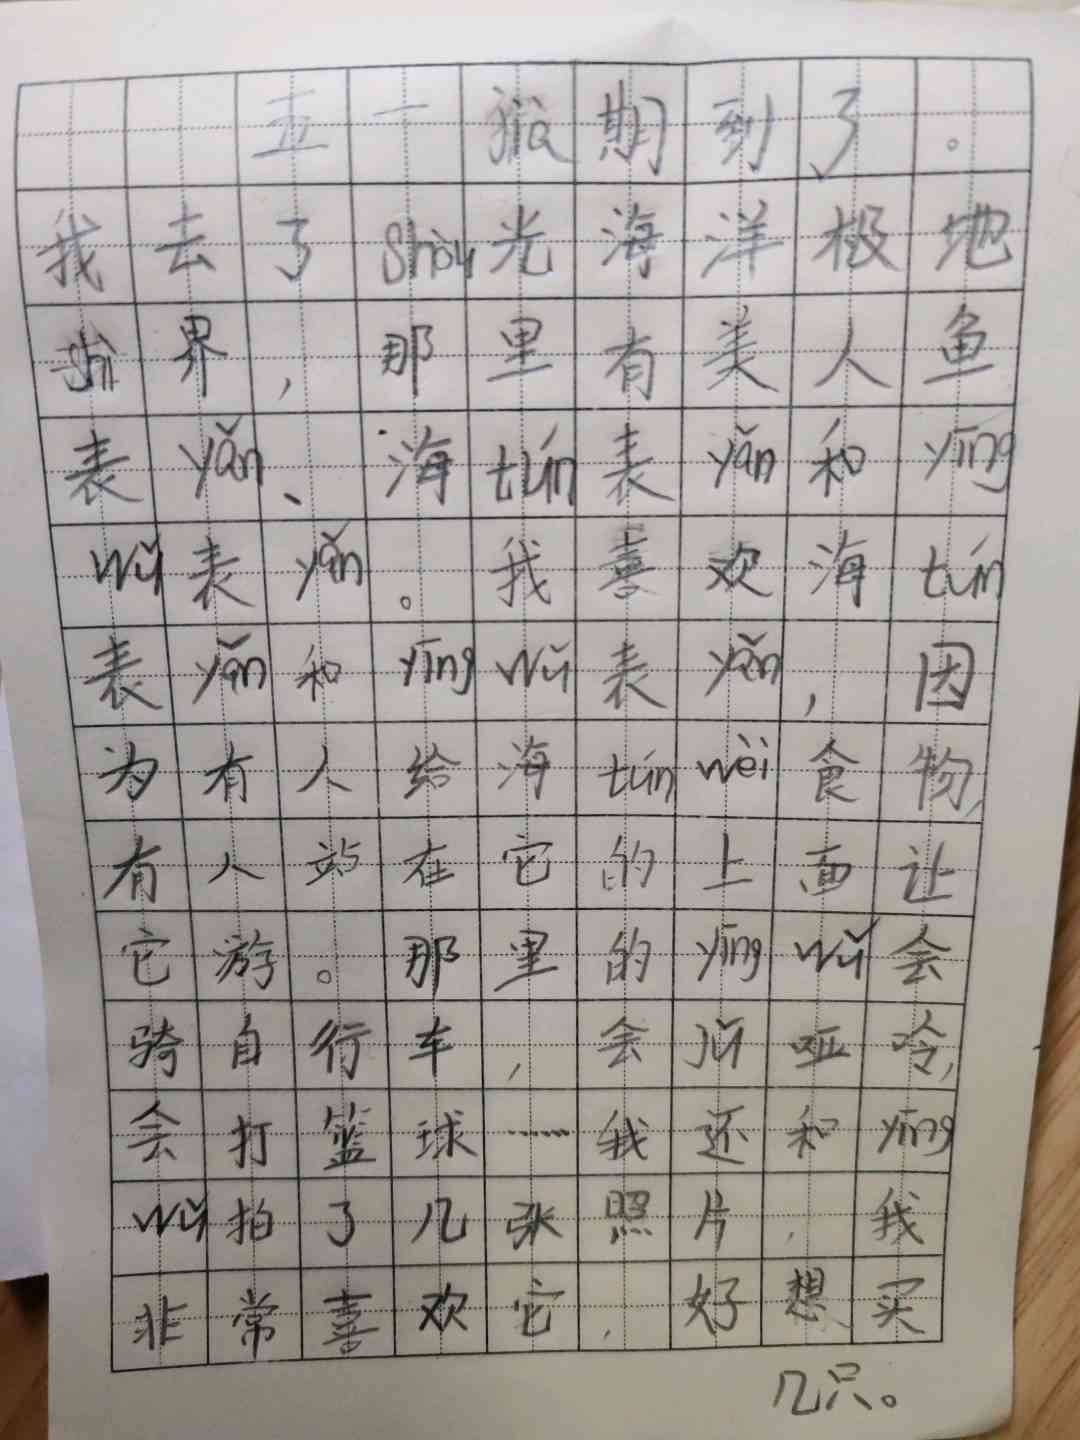 五一假期到了。
我去了shòu光海洋极地
shì界，那里有美人鱼
表yǎn、海tún表yǎn和yīng
wǔ表yǎn。我喜欢海tún
表yǎn和yīngwǔ表yǎn，因
为有人给海túnwèi食物，
有人站在它的上面让
它游。那里的yīngwǔ会
骑自行车，会jǔ哑冷，
会打篮球……我还和yīng
wǔ拍了几张照片，我
非常喜欢它，好想买
几只。